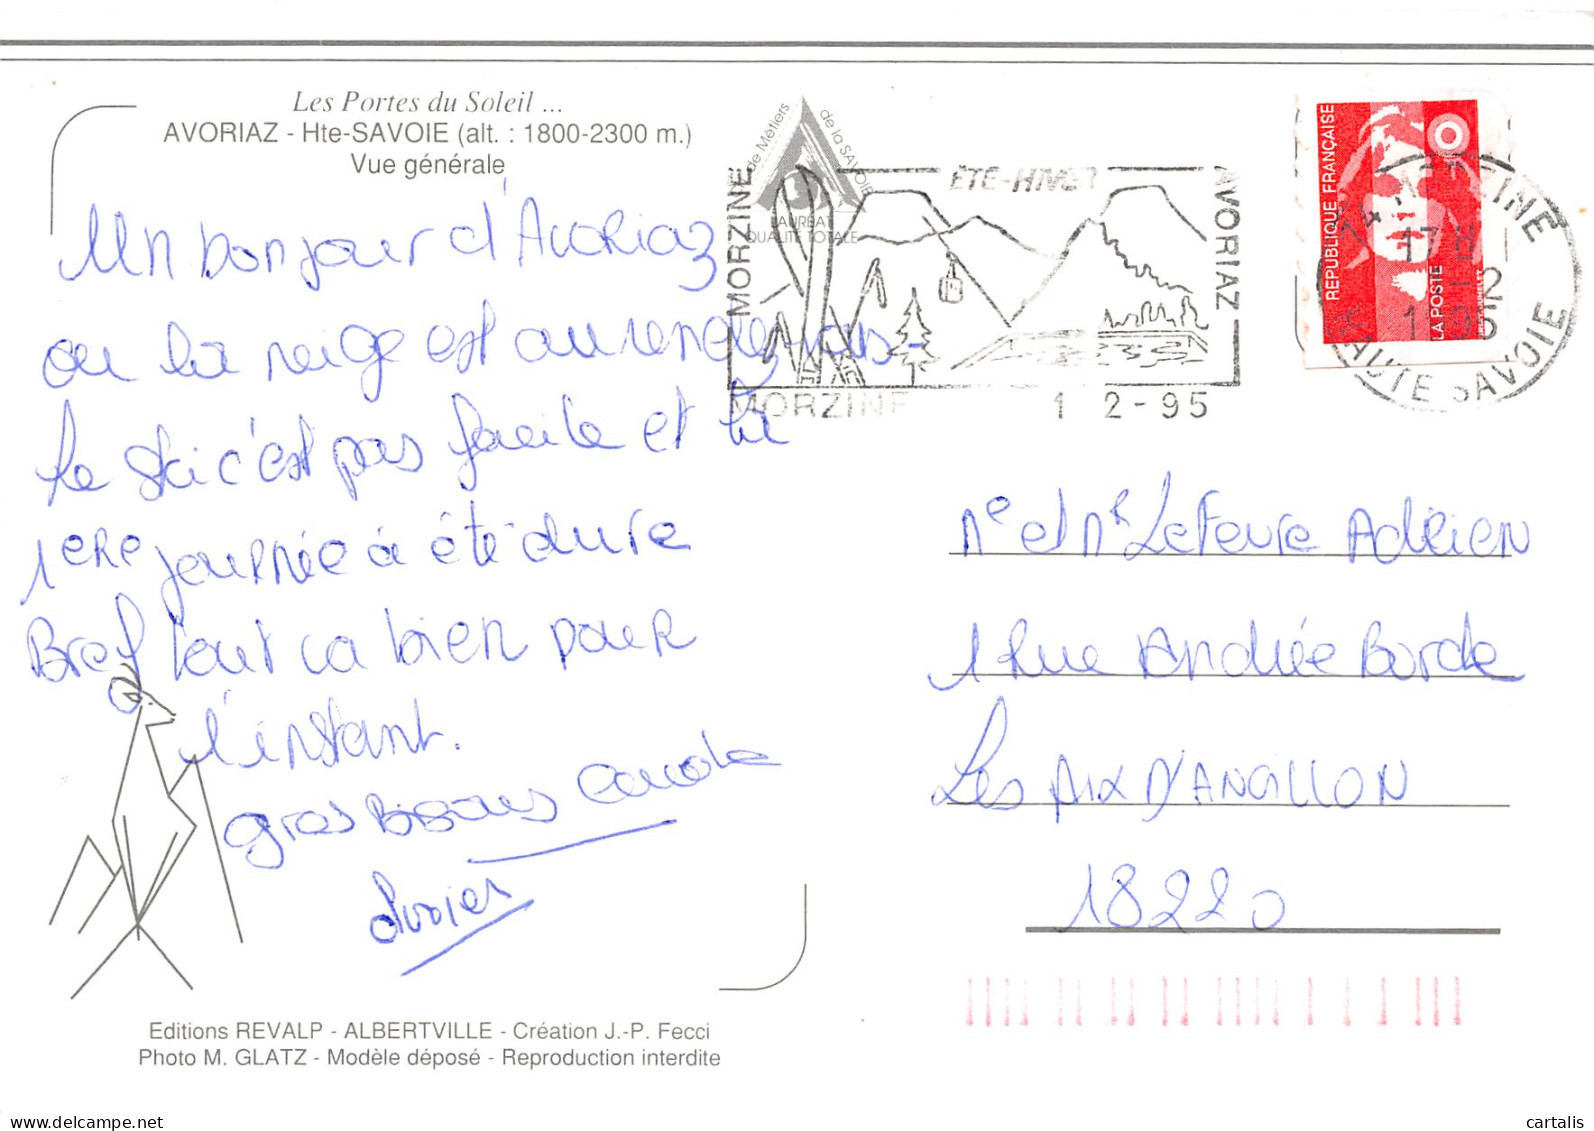 Les Portes du Soleil ...
AVORIAZ - Hte-SAVOIE (alt. : 1800-2300 m.)
Vue générale
Un bonjour d'Avoriaz
ou la neige est au rendez-vous.
Le ski c'est pas facile et la
1ere journée à été dure
Bref tout va bien pour
l'instant.
gros Bisous Carole
Olivier
Editions REVALP - ALBERTVILLE - Création J.-P. Fecci
Photo M. GLATZ - Modèle déposé - Reproduction interdite
de Métiers
de la SAVOIE
LAURÉAT
QUALITÉ TOTALE
MORZINE
ÉTÉ-HIVER
AVORIAZ
MORZINE 1 2-95
RÉPUBLIQUE FRANÇAISE
LA POSTE
74 MORZINE
17H
1-2
1995
HAUTE SAVOIE
Me et Mr Lefevre Adrien
1 Rue Andrée Borde
Les Aix D'ANGILLON
18220
delcampe.net
cartalis